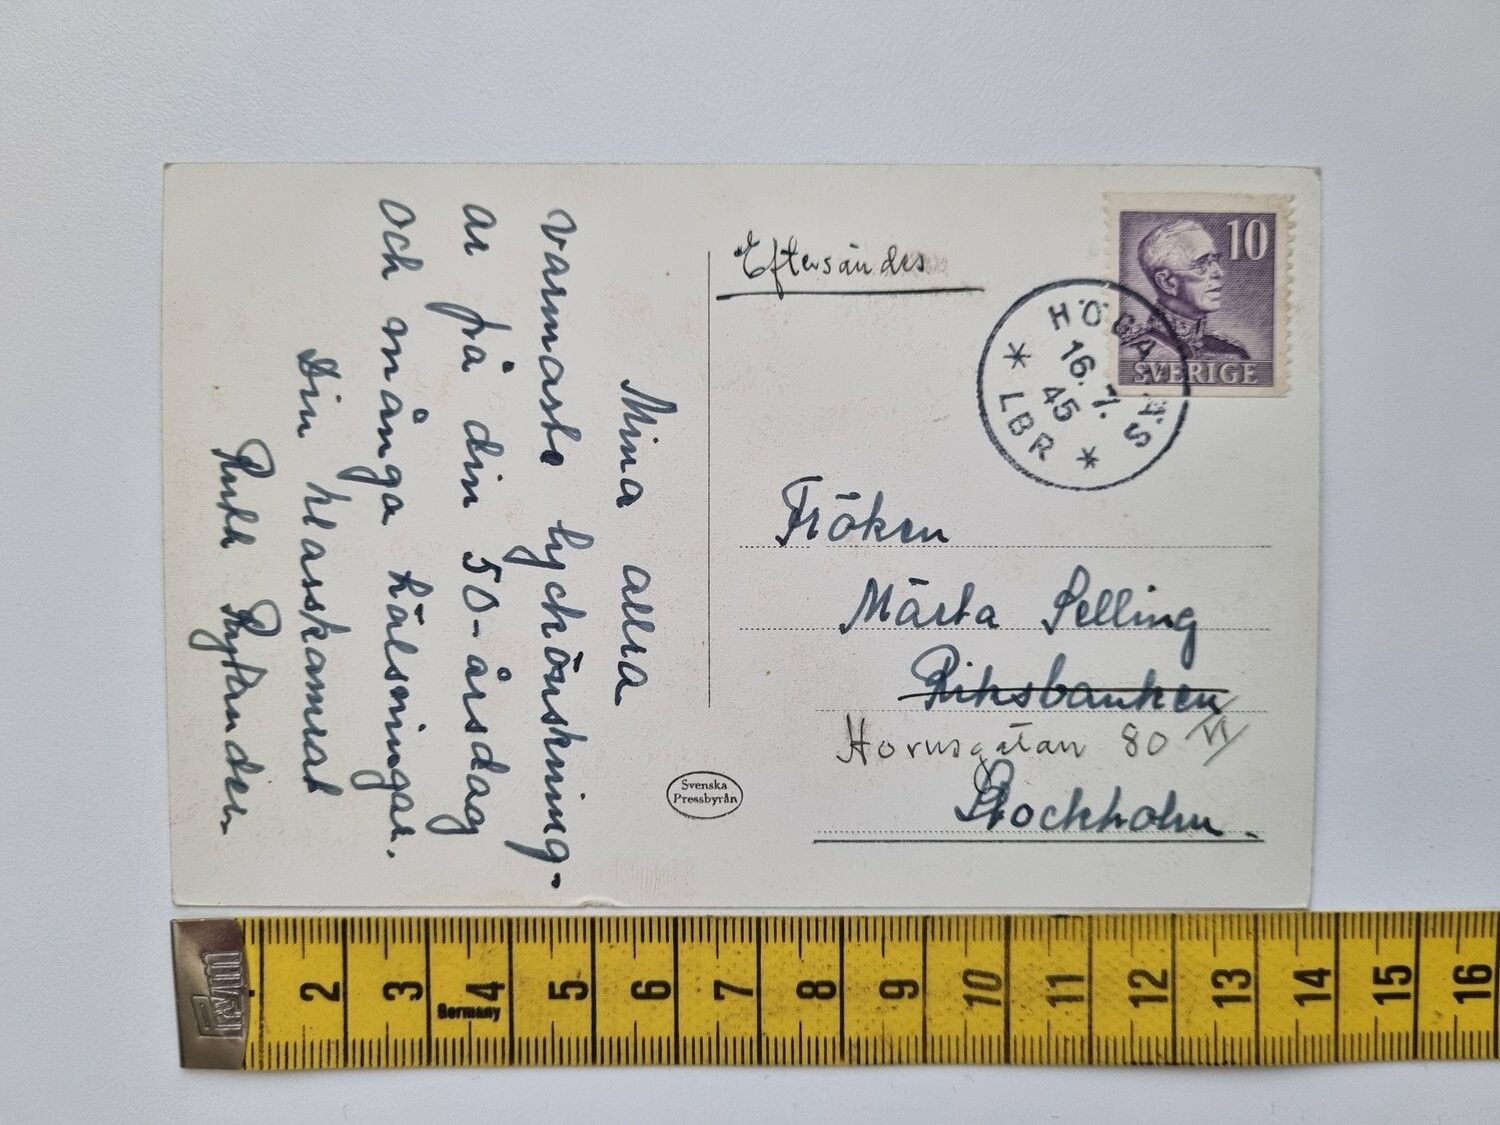 Mina allra
varmaste lyckönskning-
ar på din 50-årsdag
och många hälsningar.
Din klasskamrat
Ruth Rylander.
Eftersändes
10
SVERIGE
HÖGANÄS
16.7.
45
* LBR *
Fröken
Märta Selling
Riksbanken
Hornsgatan 80 VI
Stockholm.
Svenska
Pressbyrån
2 3 4 5 6 7 8 9 10 11 12 13 14 15 16
Germany